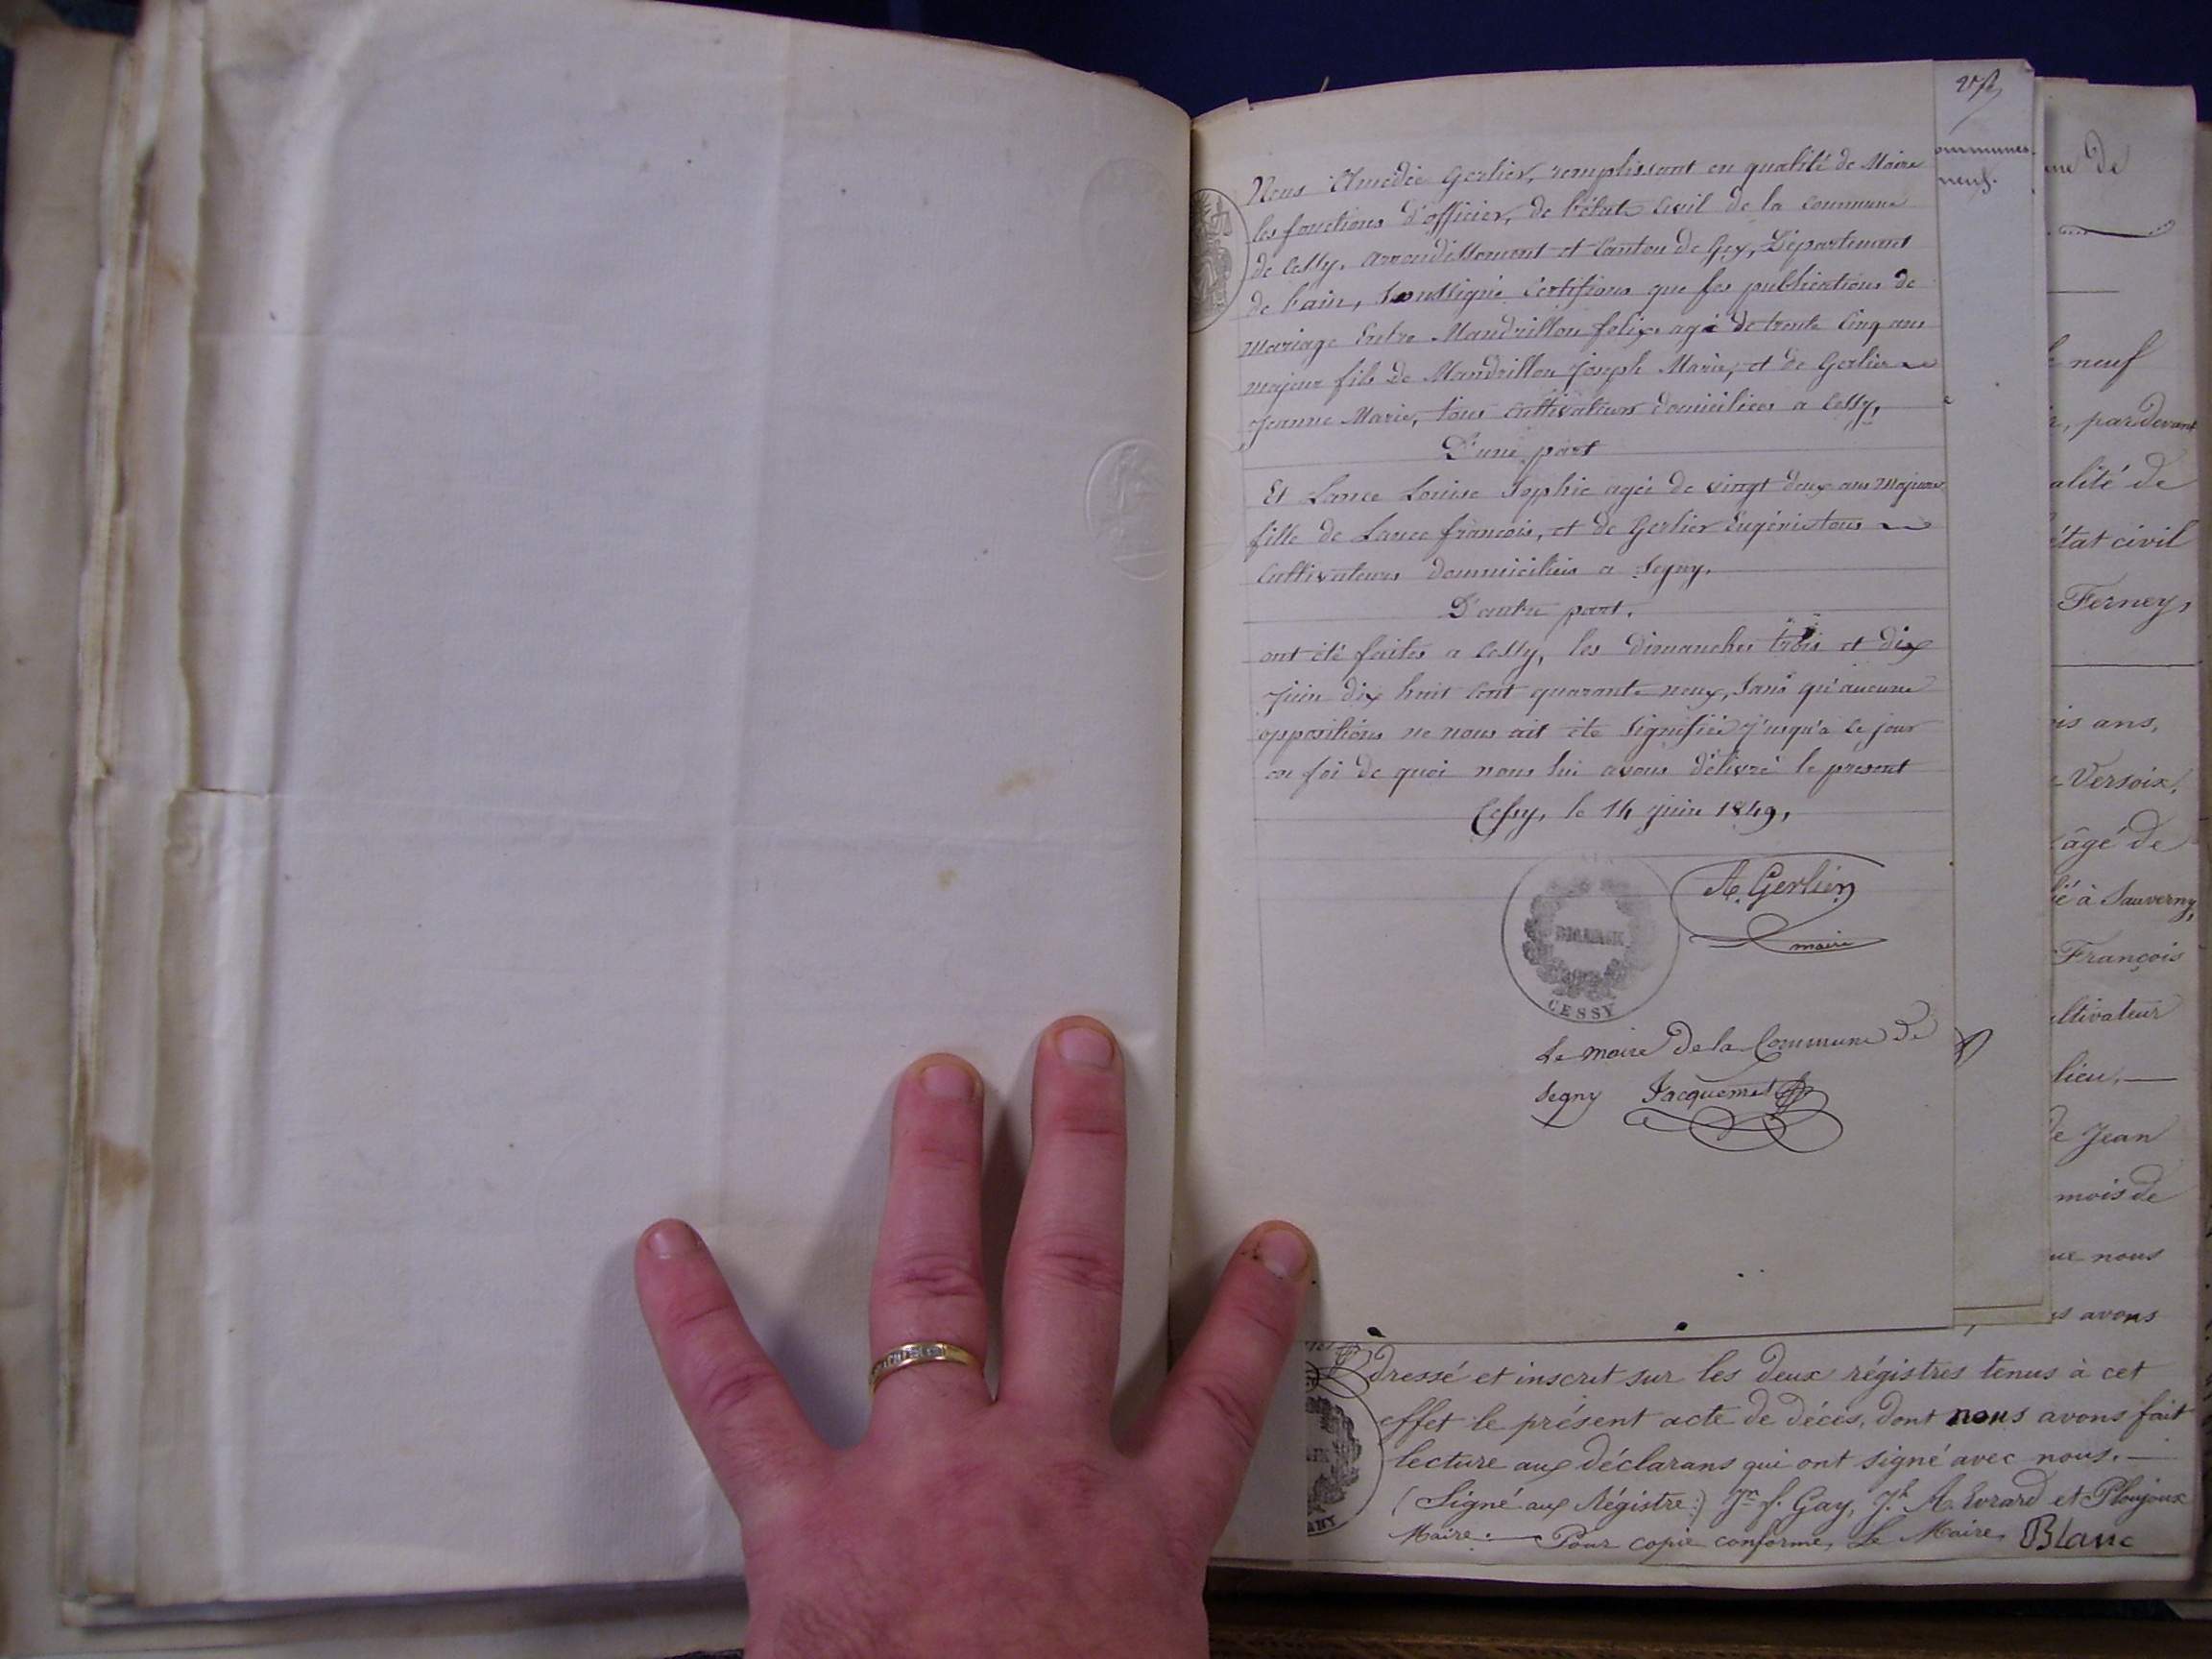 Nous Amedée Gerlier, remplissant en qualité de Maire
les fonctions d'officier, de l'état Civil de la Commune
de Cessy, arrondissement et Canton de Gex, Département
de l'ain, soussigné Certifions que les publications de
mariage Entre Mandrillon felix, agé de trente Cinq ans
majeur fils de Mandrillon Joseph Marie, et de Gerlier
Jeanne Marie, tous Cultivateurs domiciliés a Cessy,
D'une part
Et Lance Louise Sophie agée de vingt deux ans Majeure
fille de Lance francois, et de Gerlier Eugénie tous
Cultivateurs Dommiciliés a Segny.
D'autre part.
ont été faites a Cessy, les dimanches trois et dix
Juin dix huit Cent quarante neuf, sans qu'aucune
oppositions ne nous ait été signifiée j'usqu'à ce jour
en foi de quoi nous lui avons délivré le present
Cessy, le 14 juin 1849,
A. Gerlier
maire
CESSY
Le maire de la Commune de
Segny Jacquemet
dressé et inscrit sur les deux régistres tenus à cet
effet le présent acte de décès, dont nous avons fait
lecture aux déclarans qui ont signé avec nous.
(Signé aux Régistre:) Jn f. Gay, Jh A. Evrard et Ploujoux
Maire. Pour copie conforme, Le Maire, Blanc
ommunes.
neuf.
me de
neuf
, pardevant
alité de
état civil
Ferney,
is ans,
Versoix,
âgé de
ié à Sauverny,
François
ultivateur
lieu,
de Jean
mois de
ue nous
s avons